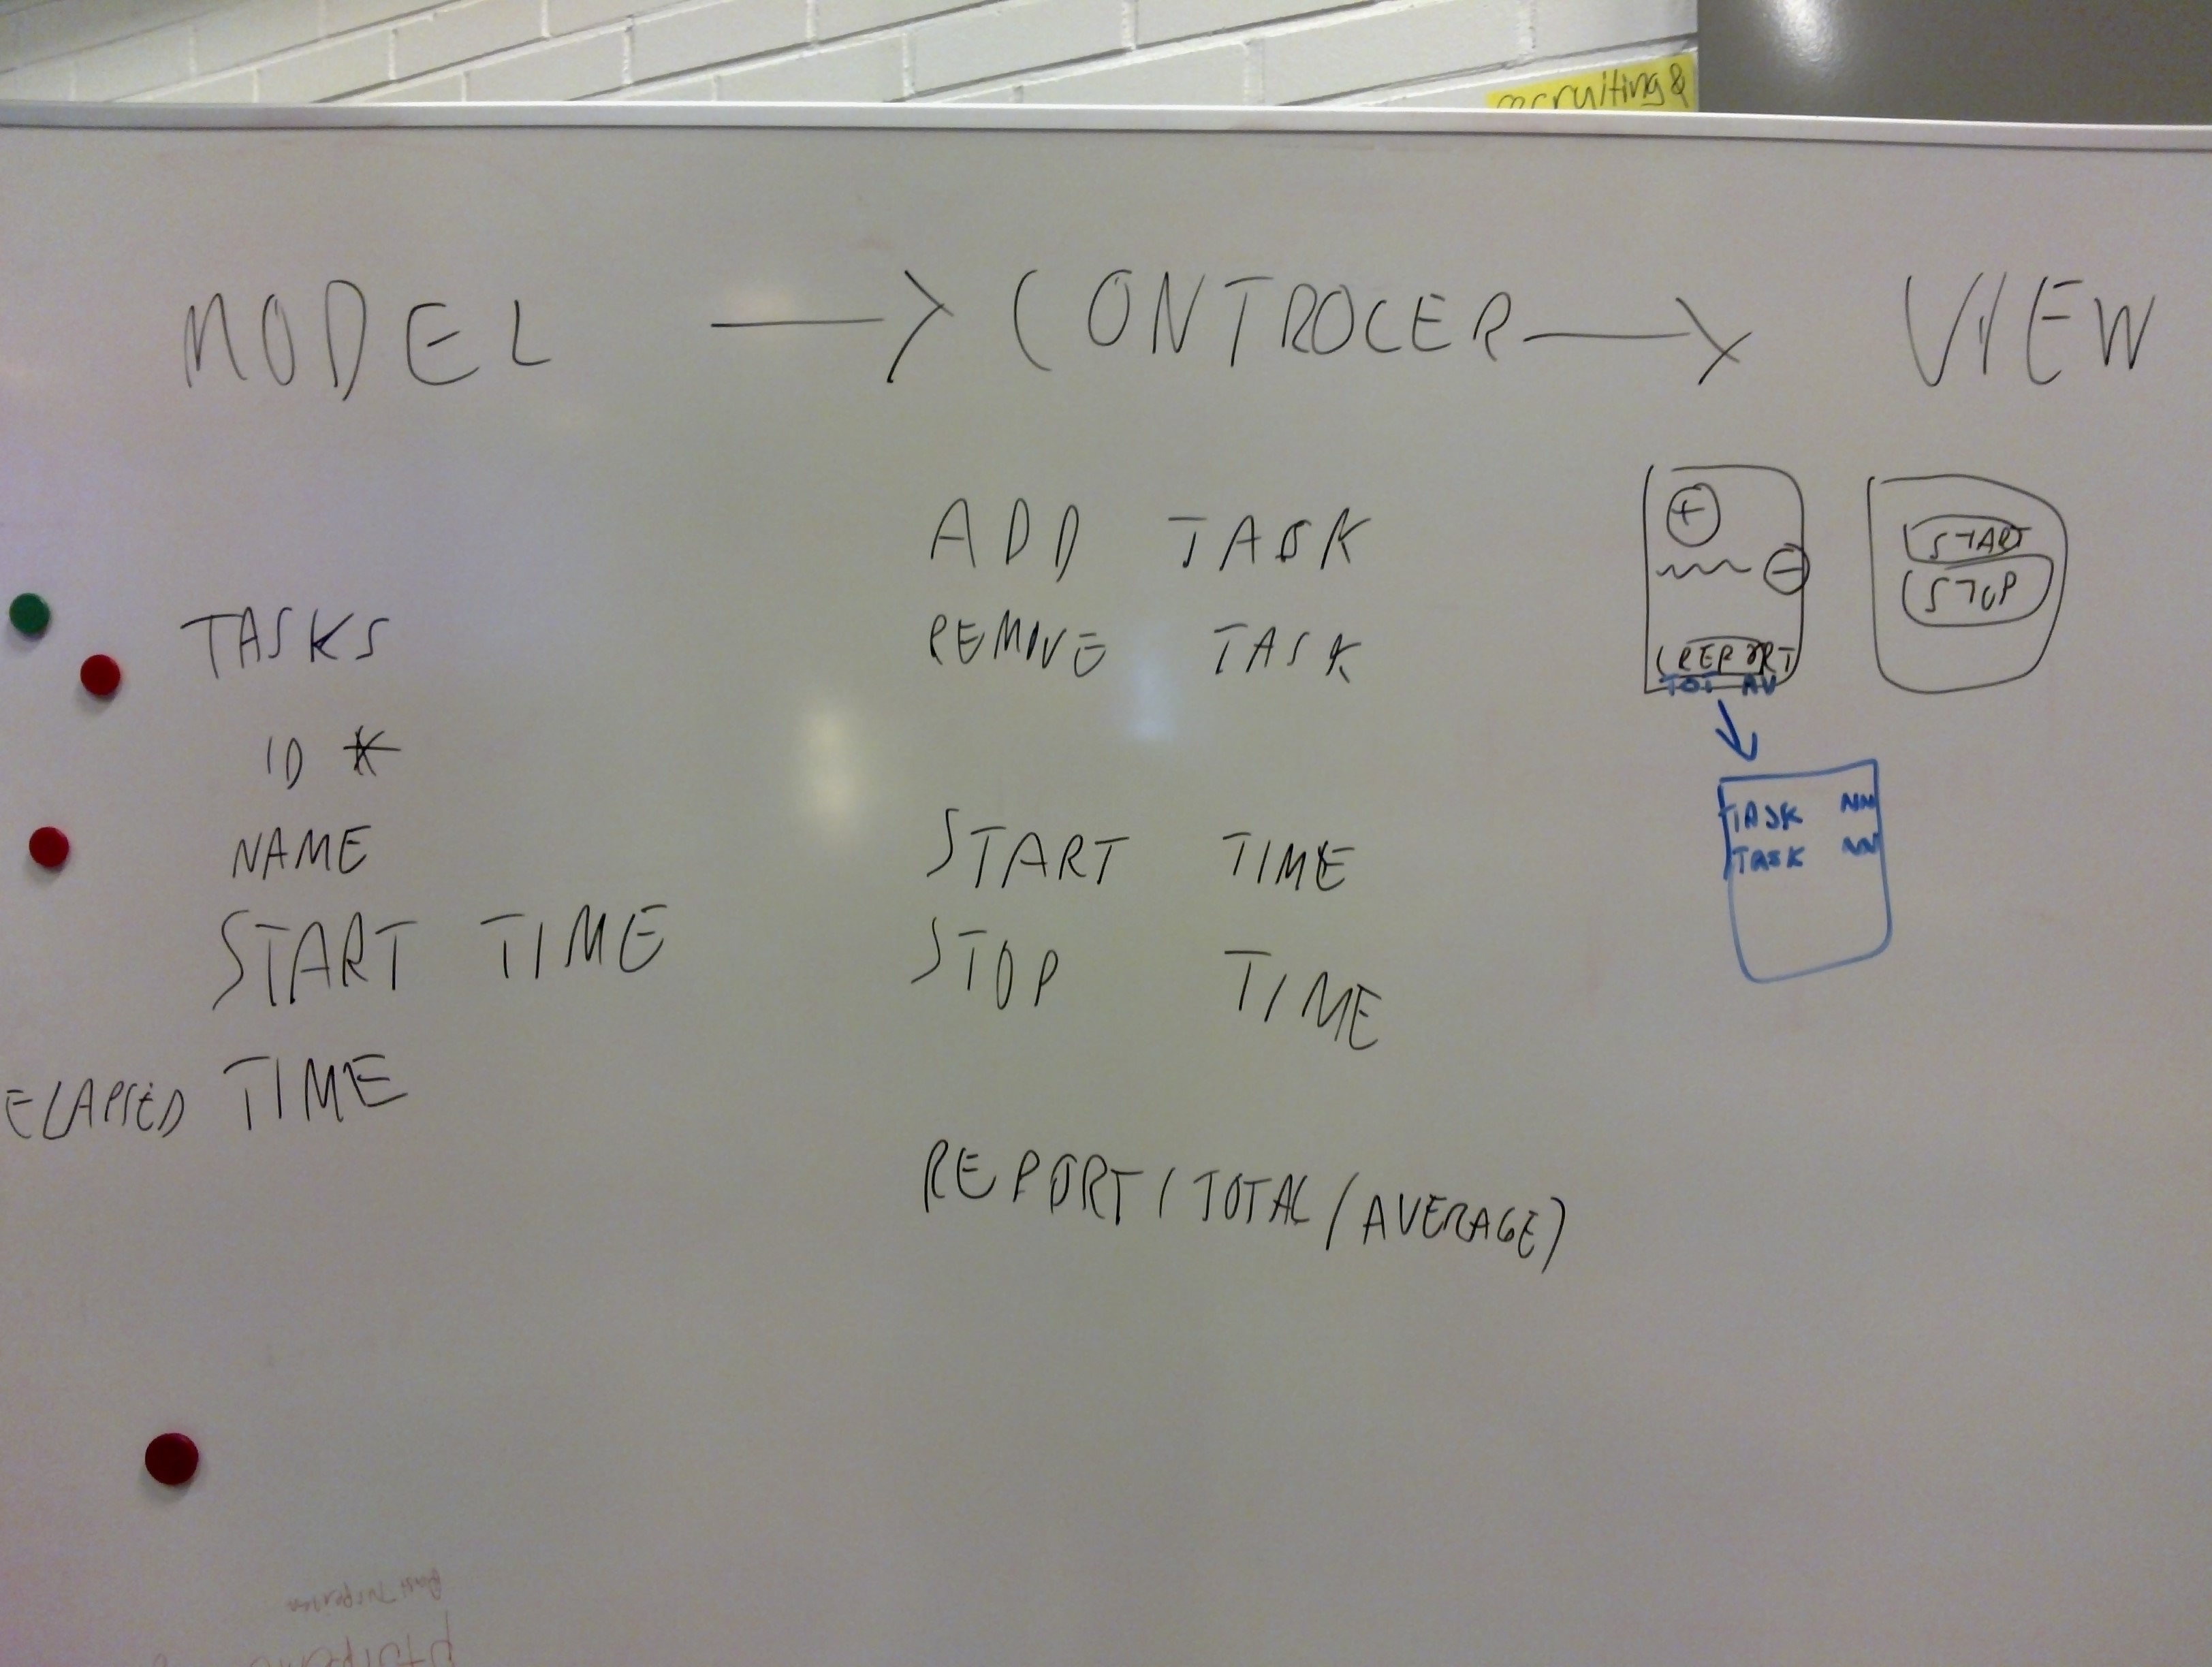 recruiting &
MODEL → CONTROLER → VIEW
TASKS
ID *
NAME
START TIME
ELAPSED TIME
ADD TASK
REMOVE TASK
START TIME
STOP TIME
REPORT (TOTAL / AVERAGE)
+
-
REPORT
TOT AV
START
STOP
TASK
TASK